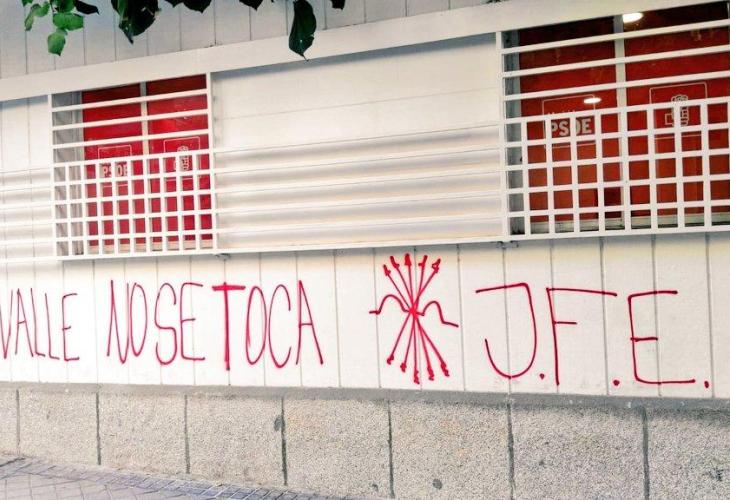 PSOE
PSOE
VALLE NO SE TOCA J.F.E.